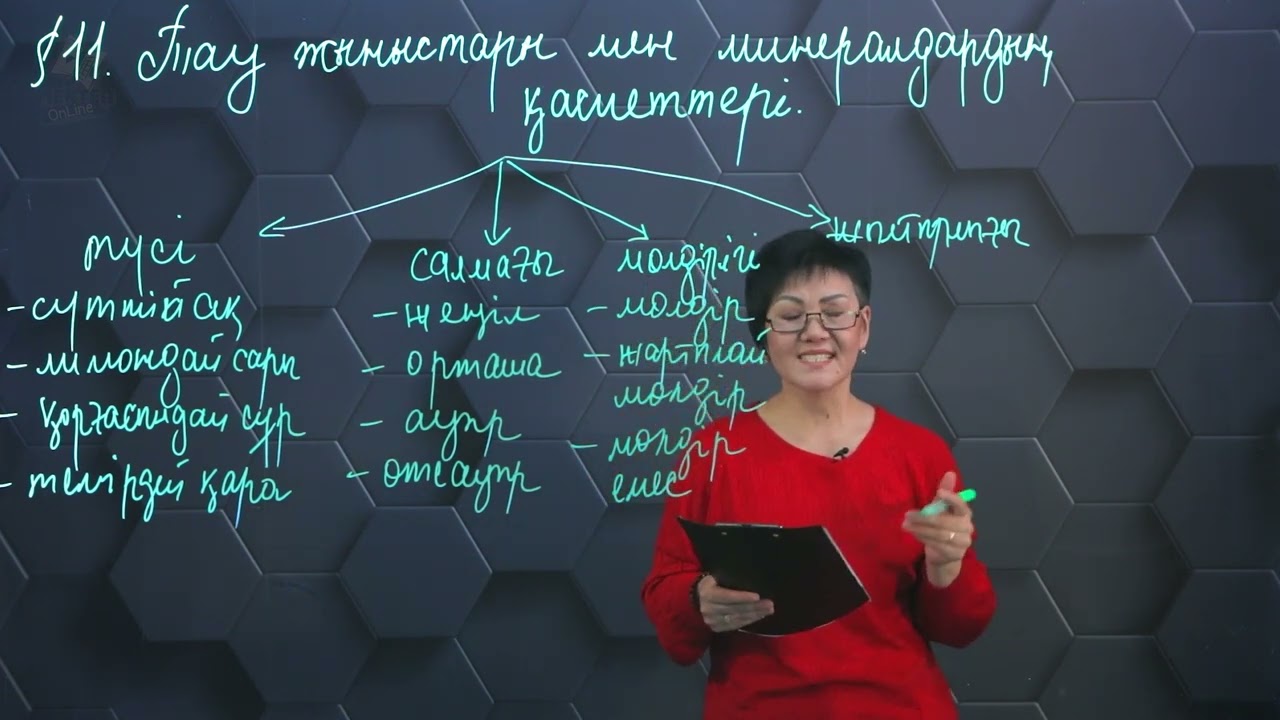 § 11. Тау жыныстары мен минералдардың
қасиеттері.
OnLine
түсі
- сүттің ақ
- лимондай сары
- қорғасындай сұр
- темірдей қара
салмағы
- жеңіл
- орташа
- ауыр
- өте ауыр
мөлдірлігі
- мөлдір
- жартылай
мөлдір
- мөлдір
емес
жылтырлығы